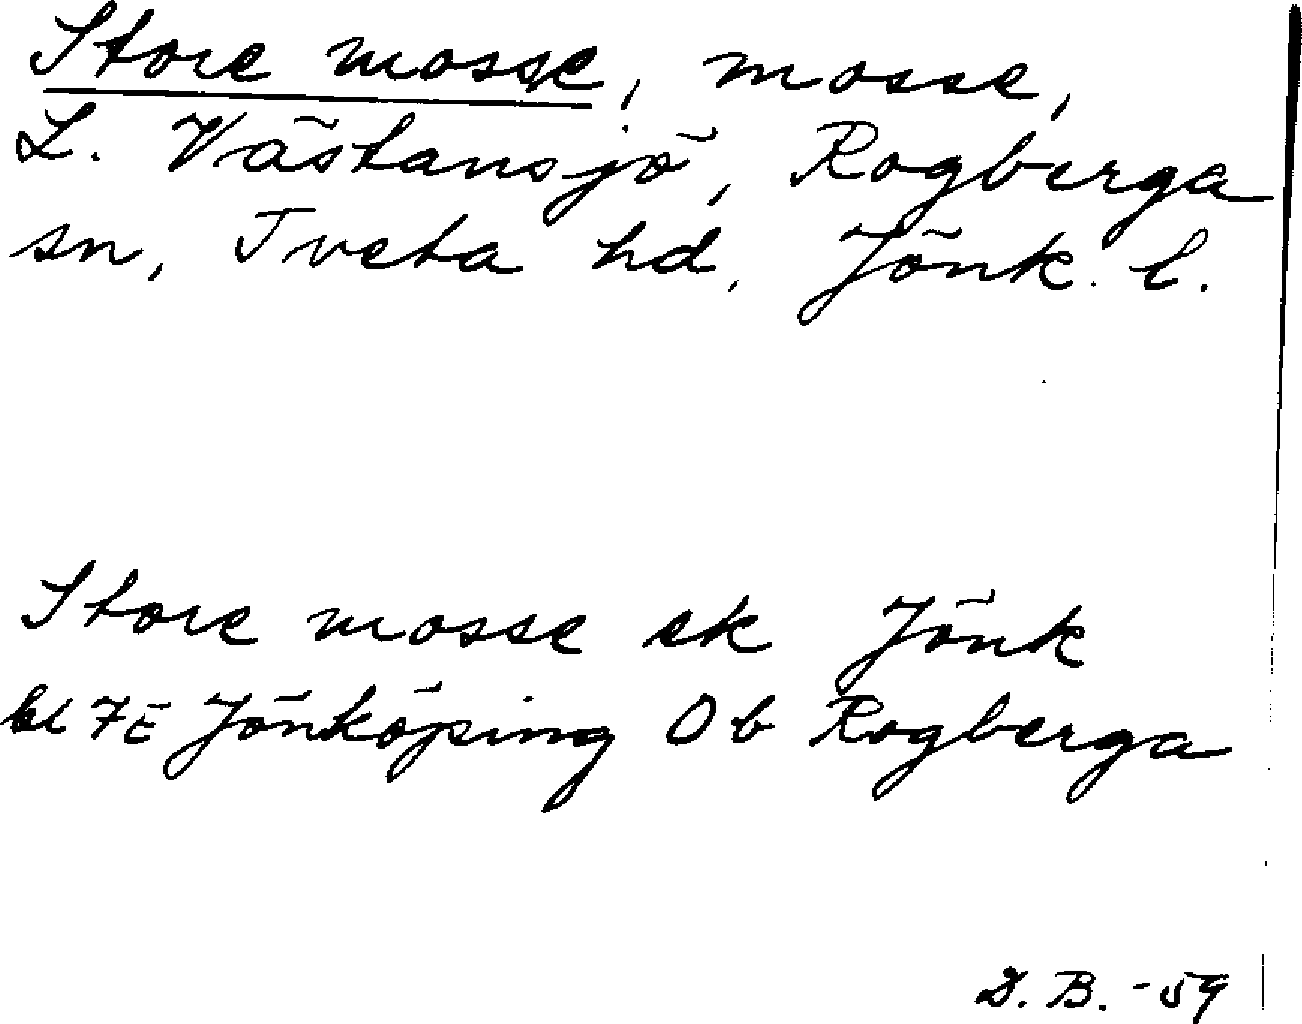 Store mosse, mosse,
L. Västansjö, Rogberga
sn, Tveta hd, Jönk. l.
Store mosse ek Jönk
bl 7E Jönköping Ob Rogberga
D. B. -59